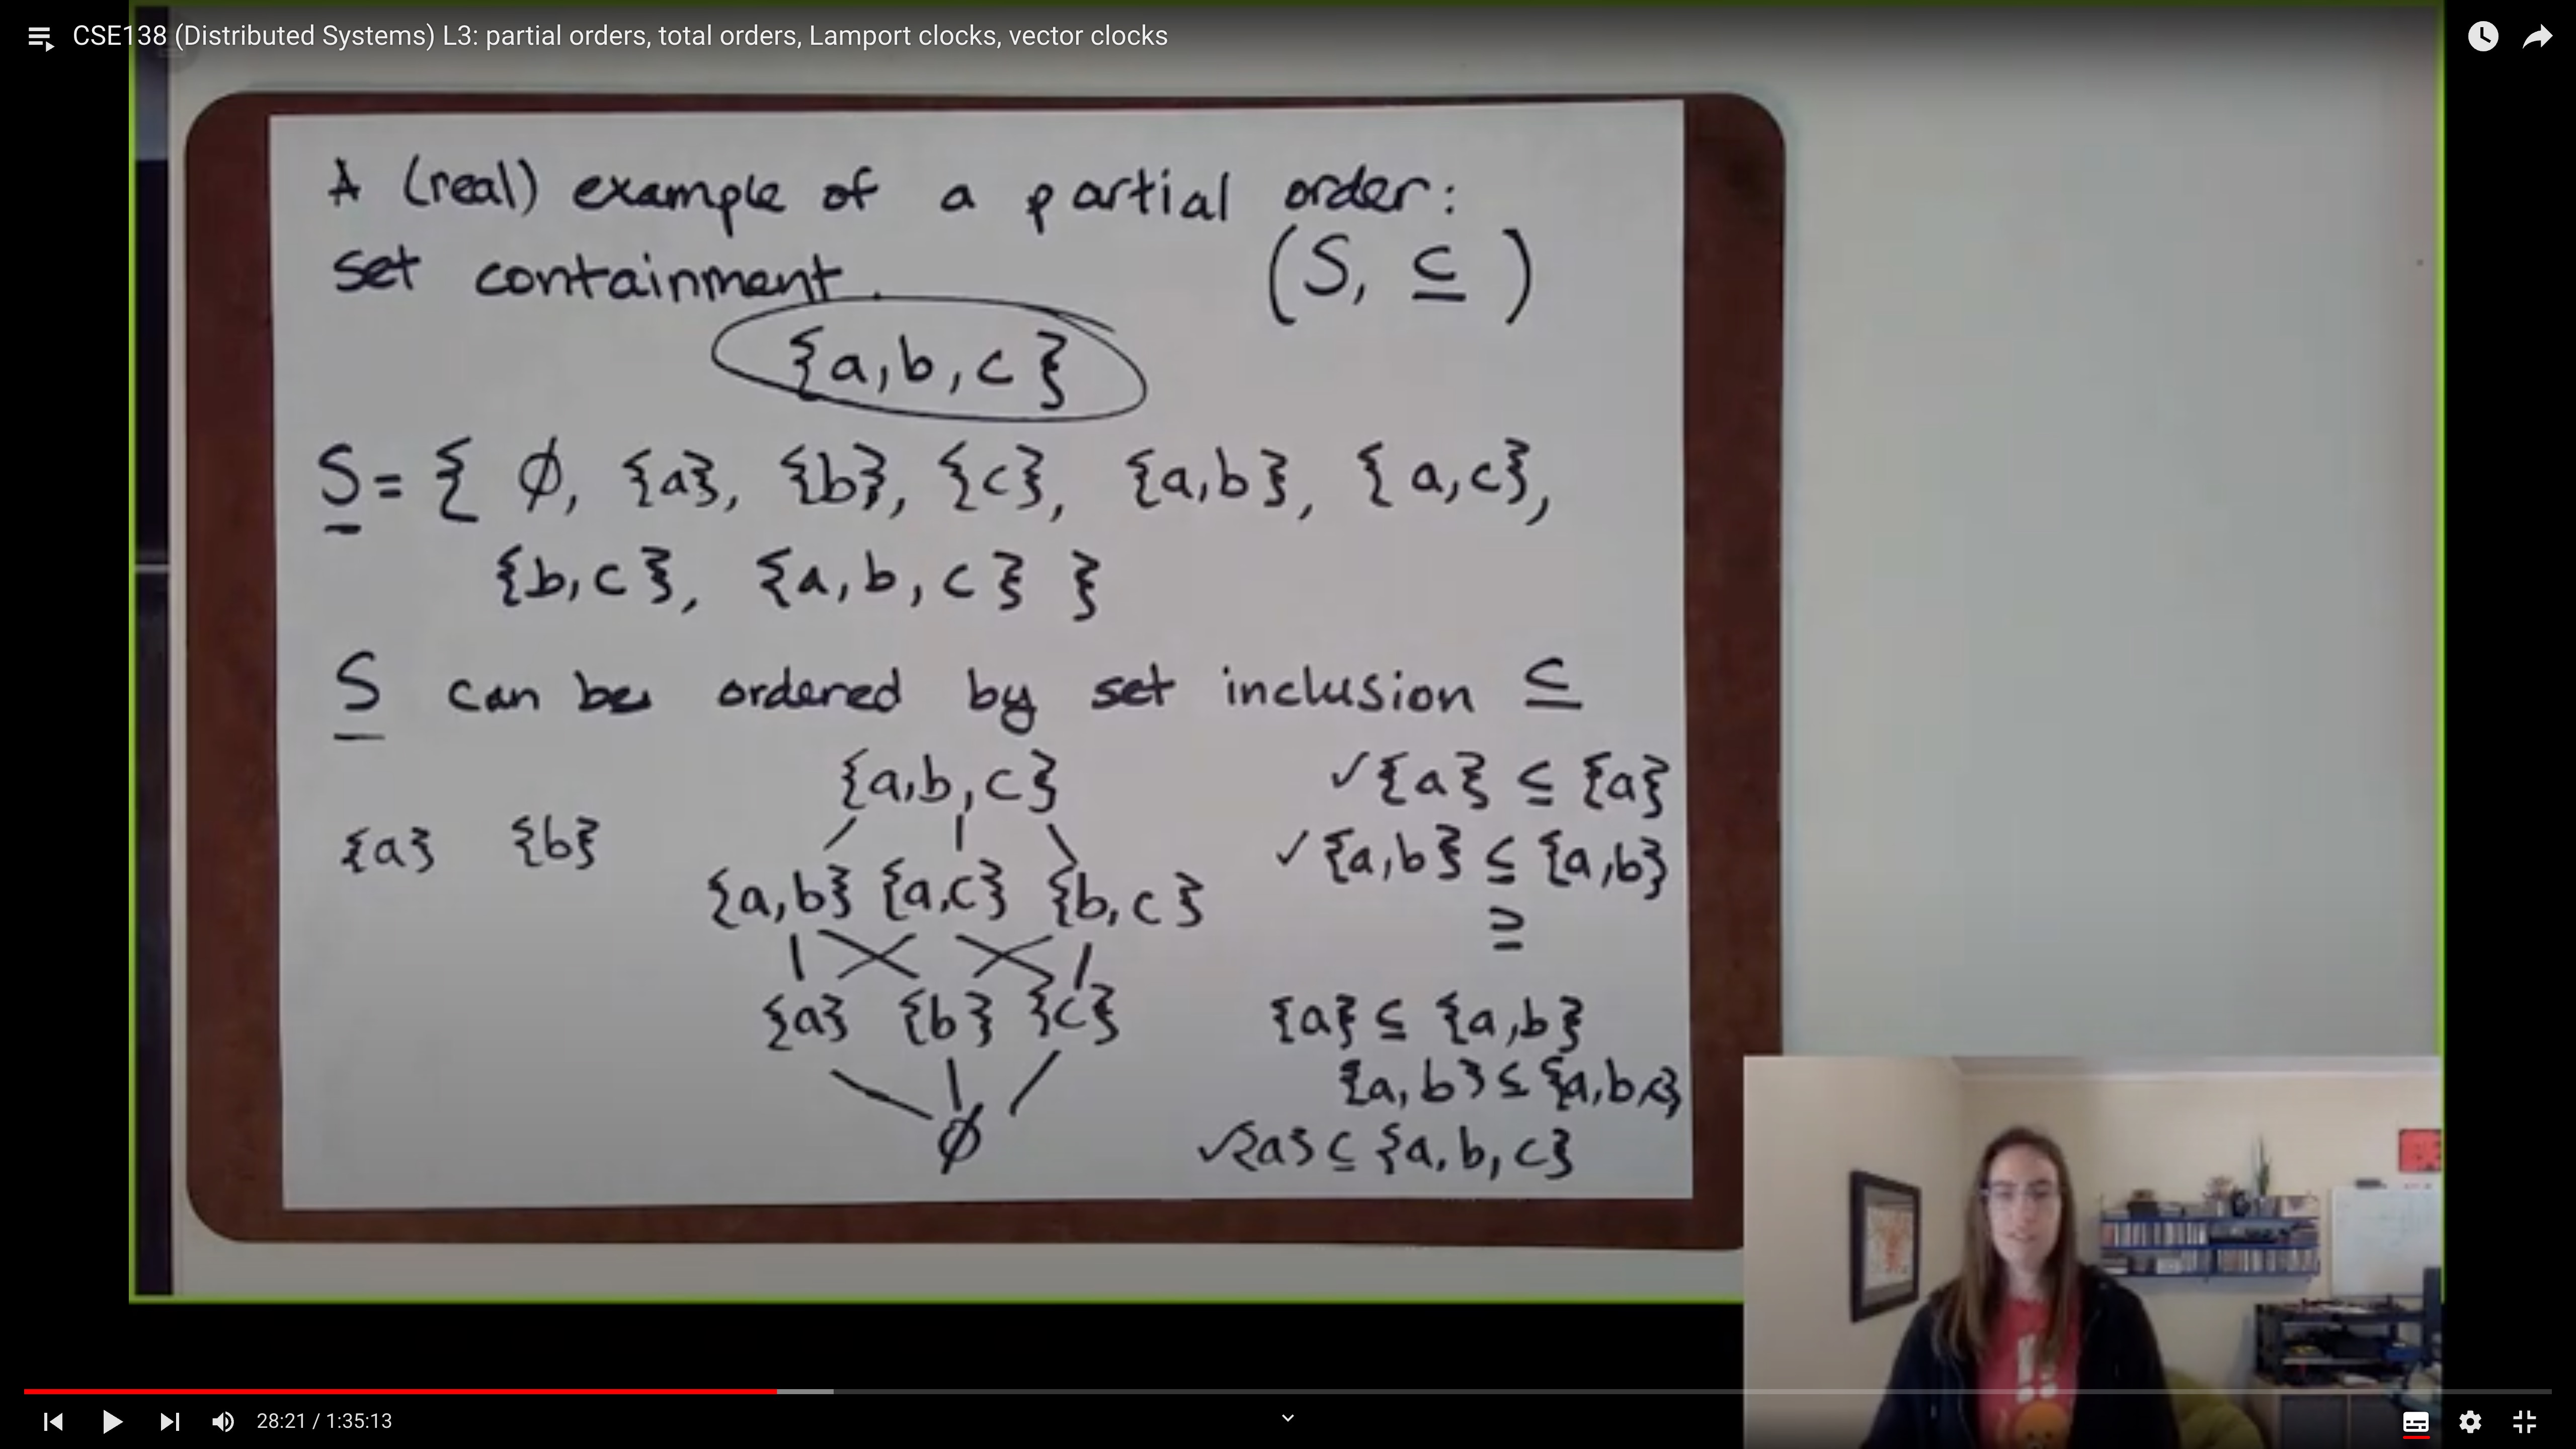 CSE138 (Distributed Systems) L3: partial orders, total orders, Lamport clocks, vector clocks
A (real) example of a partial order:
set containment.
(S, ⊆)
{a,b,c}
S = { ∅, {a}, {b}, {c}, {a,b}, {a,c},
{b,c}, {a,b,c} }
S can be ordered by set inclusion ⊆
{a} {b}
{a,b,c}
{a,b} {a,c} {b,c}
{a} {b} {c}
∅
✓{a} ⊆ {a}
✓{a,b} ⊆ {a,b}
⊇
{a} ⊆ {a,b}
{a,b} ⊆ {a,b,c}
✓{a} ⊆ {a,b,c}
28:21 / 1:35:13